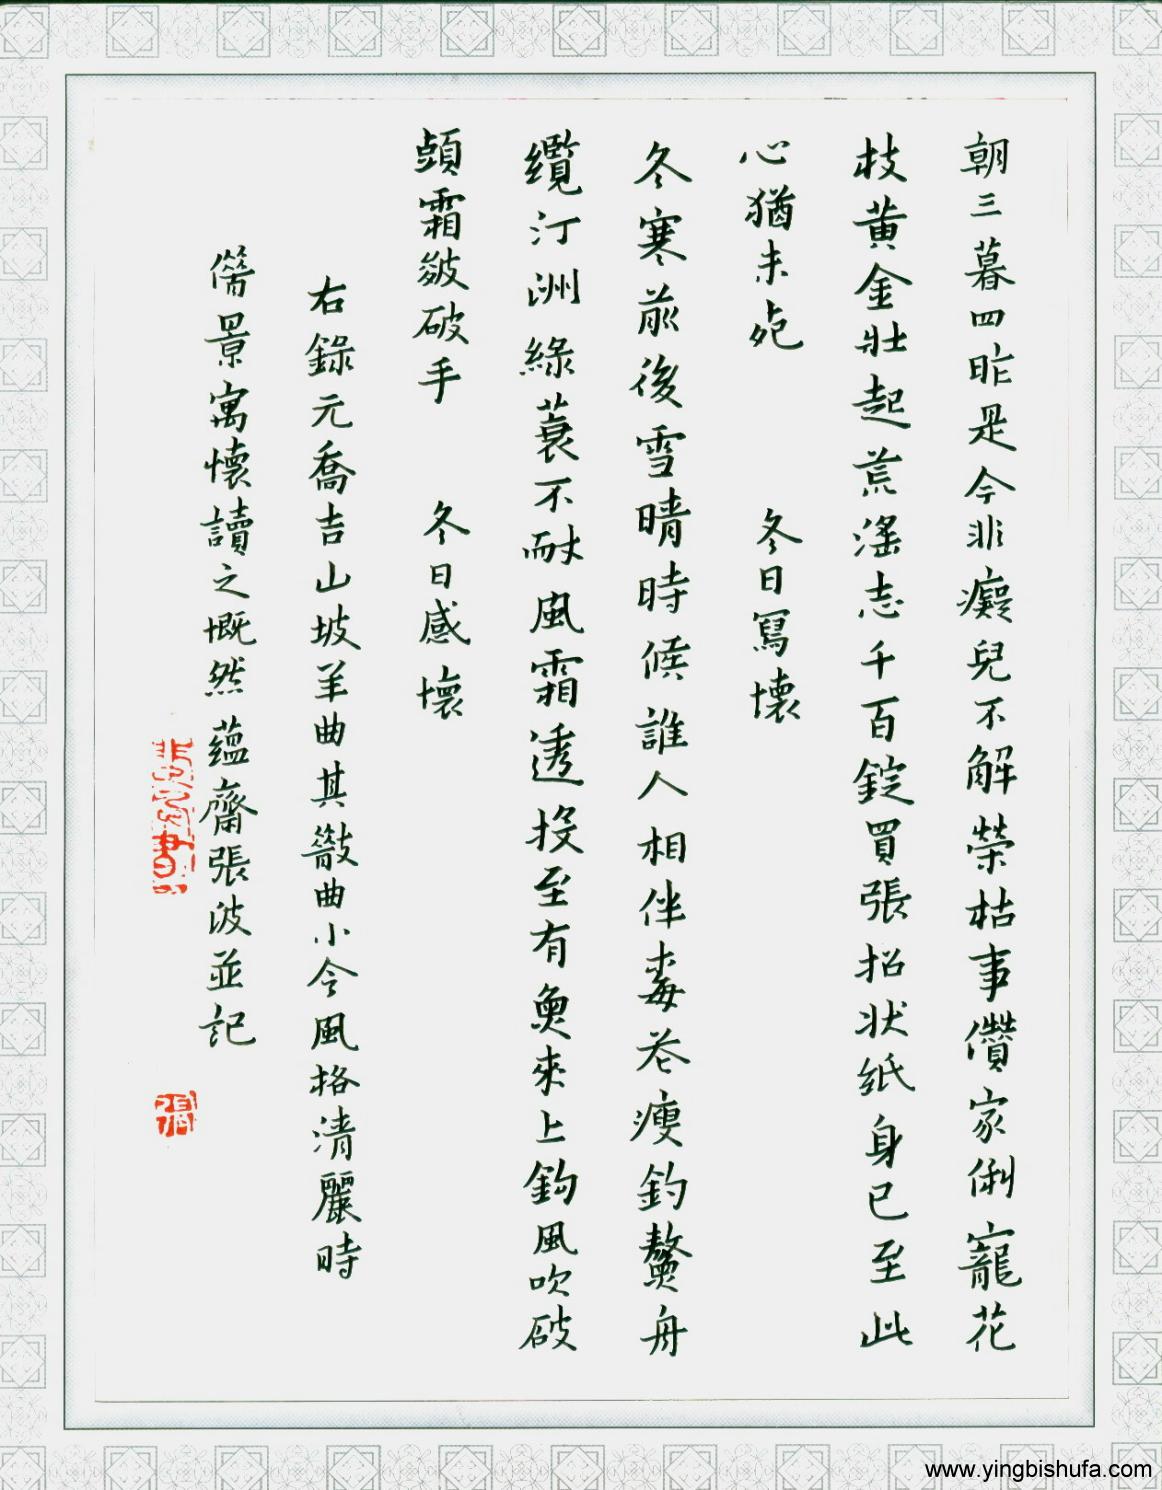 朝三暮四昨是今非癡兒不解榮枯事儹家俬寵花
枝黃金壯起荒滛志千百錠買張招狀紙身已至此
心猶未死 冬日寫懷
冬寒前後雪晴時候誰人相伴梅花瘦釣鰲舟
纜汀洲綠蓑不耐風霜透投至有魚來上鈎風吹破
頭霜皴破手 冬日感懷
右錄元喬吉山坡羊曲其散曲小令風格清麗時
借景寓懷讀之慨然蘊齋張波並記
張
www.yingbishufa.com